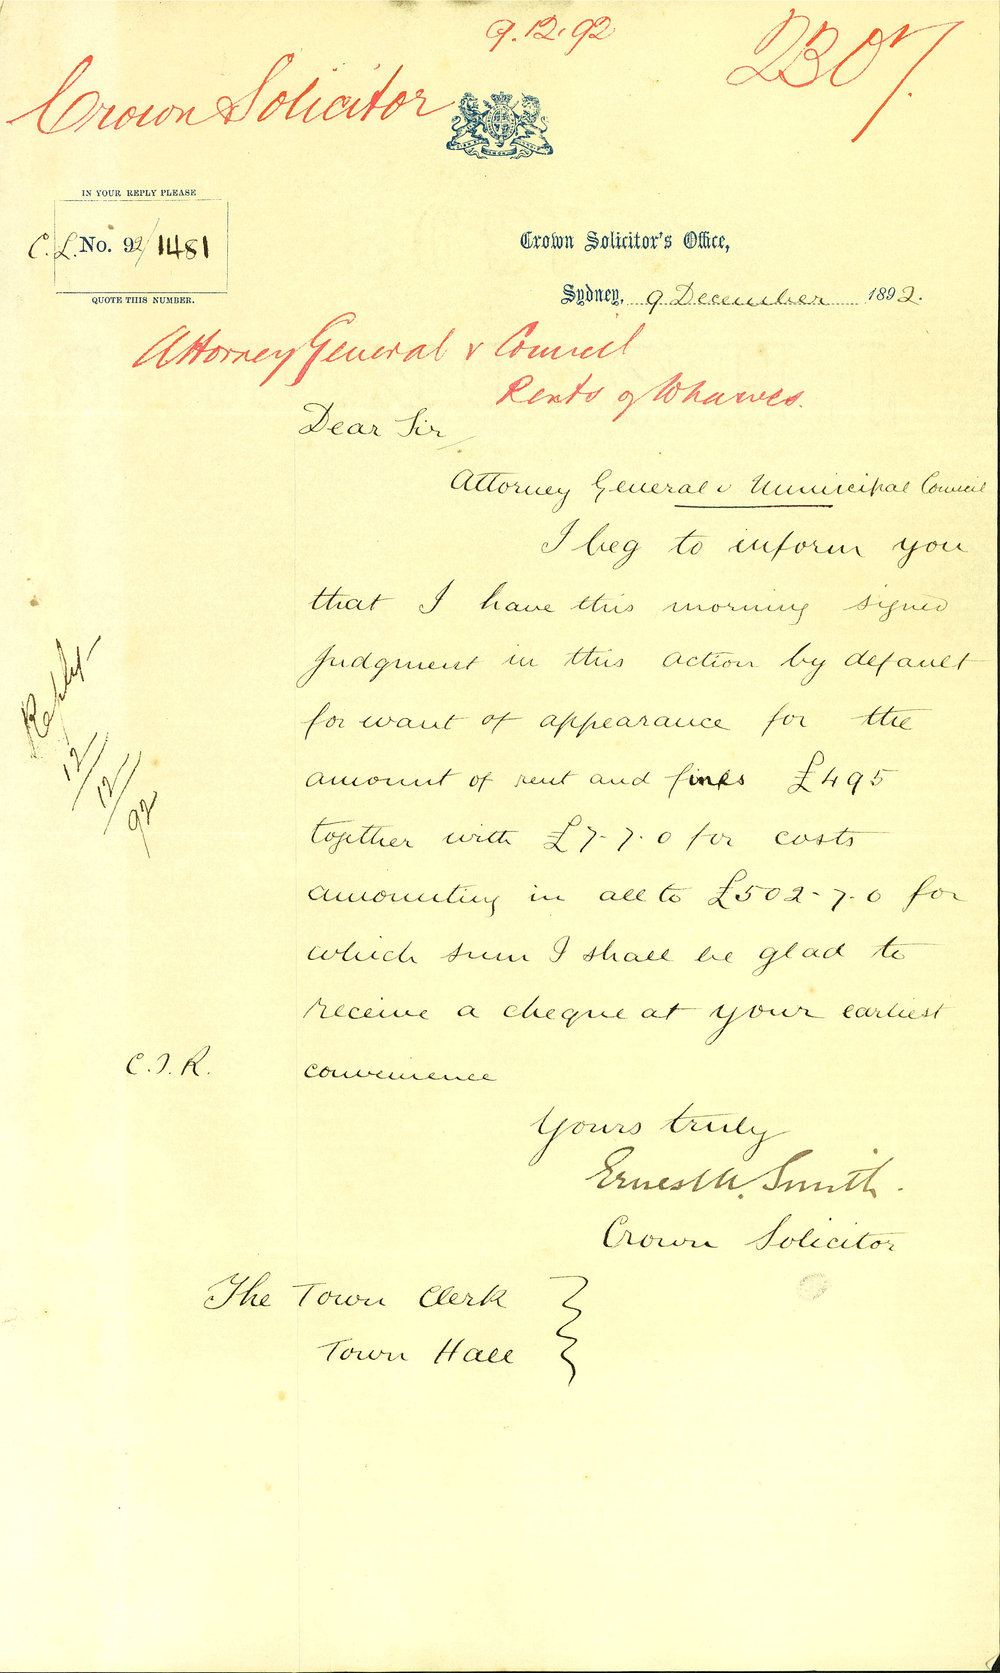 9.12.92
2307.
Crown Solicitor
IN YOUR REPLY PLEASE
C.L. No. 92/1481
QUOTE THIS NUMBER.
Crown Solicitor's Office,
Sydney, 9 December 1892.
Attorney General v Council
Rents of Wharves.
Dear Sir
Attorney General v Municipal Council
I beg to inform you
that I have this morning signed
judgment in this action by default
for want of appearance for the
amount of rent and fines £495
together with £7-7-0 for costs
amounting in all to £502-7-0 for
which sum I shall be glad to
receive a cheque at your earliest
convenience
Reply
12/12/92
C.J.R.
Yours truly
Ernest A. Smith.
Crown Solicitor
The Town Clerk
Town Hall